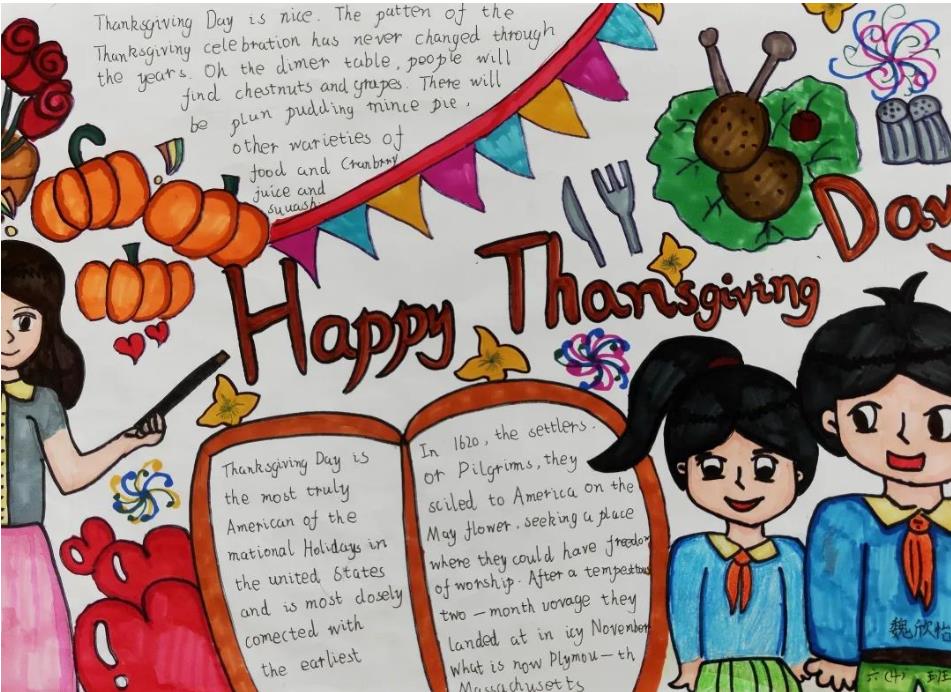 Thanksgiving Day is nice. The patten of the
Thanksgiving celebration has never changed through
the years. Oh the dimer table, poople will
find chestnuts and grapes. There will
be plun pudding mince pie,
other warieties of
food and Cranbrry
juice and
squash.
Happy Thanksgiving Day
Thanksgiving Day is
the most truly
American of the
mational Holidays in
the united States
and is most closely
comected with
the earliest
In 1620, the settlers.
or Pilgrims, they
sciled to America on the
May flower, seeking a place
where they could have freedom
of worship. After a tempesttous
two-month vovage they
landed at in icy November
what is now Plymou-th
Massachusetts
魏欣怡
六(4)班